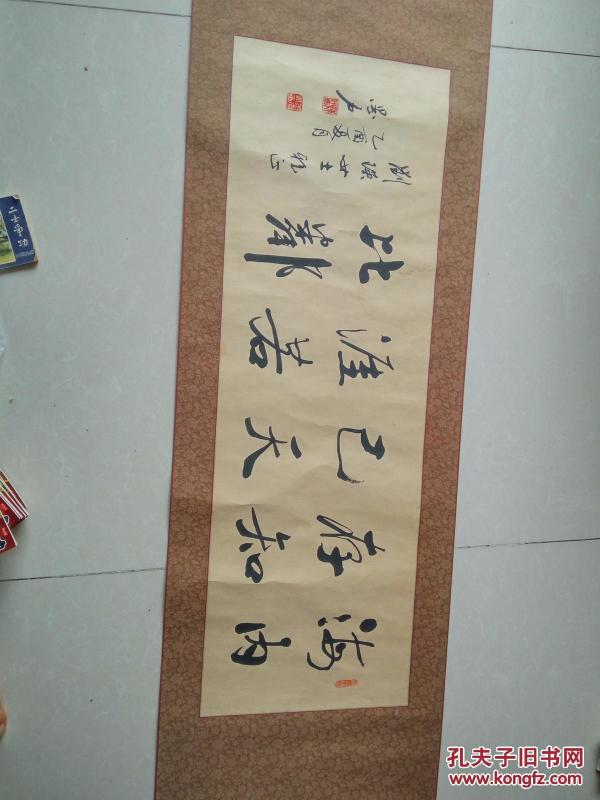 海内
存知
己天
涯若
比鄰
劉 女士雅正
乙酉夏月
孔夫子旧书网
www.kongfz.com